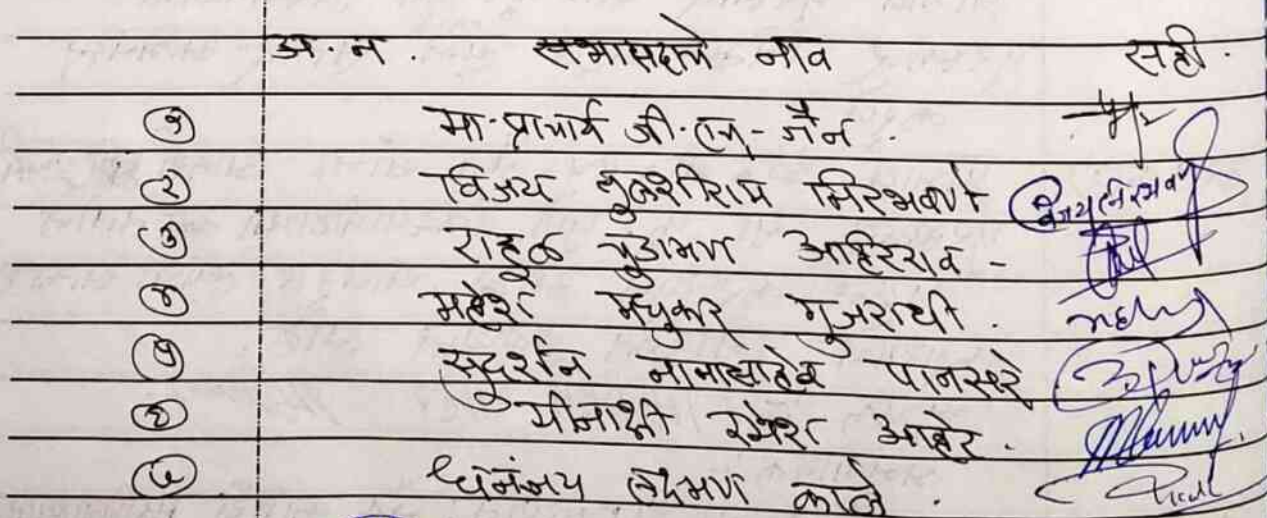 अ.न. सभासदाचे नाव सही.
१ मा. प्राचार्य जी. एन. जैन.
२ विजय तुळशीराम मिरभवणे विजय मिरभवणे
३ राहूळ चुडामण आहिरराव -
४ महेश मधुकर गुजराथी.
५ सुदर्शन नानासाहेब पानसरे
६ मीनाक्षी रमेश आहेर.
७ धनंजय लक्ष्मण काळे.